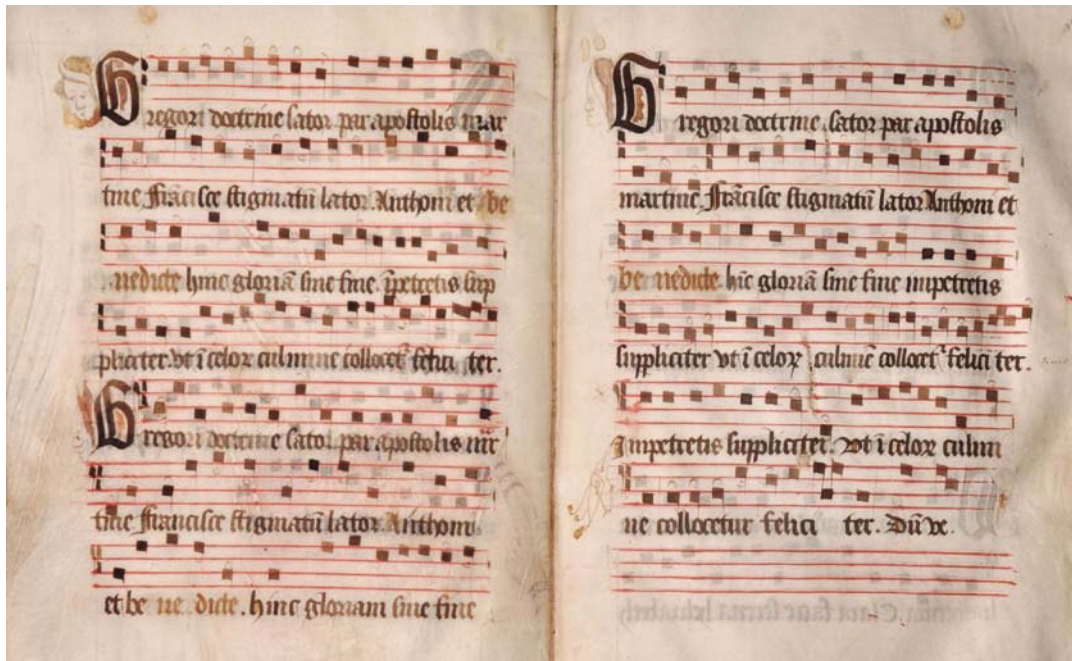 Gregori doctrine sator par apostolis mar
tine ffrācisce stigmatū lator. Anthoni et be
nedicte hinc gloriā sine fine. īpetretis sup
pliciter. vt ī celoꝝ culmine collocet᷑ felici ter.
Gregori doctrine e sator par apostolis mr
tine ffrancisce stigmatū lator. Anthoni.
et be ne. dicte. hinc gloriam sine fine
Gregori doctrine. sator par apostolis
martine. ffrācisce stigmatū lator Anthoni et
be nedicte. hīc gloriā sine fine impetretis
suppliciter vt ī celoꝝ culmīe collocet᷑ felici ter.
Impetretis suppliciter. vt ī celoꝝ culmi
ne collocetur felici ter. Dūi ve.